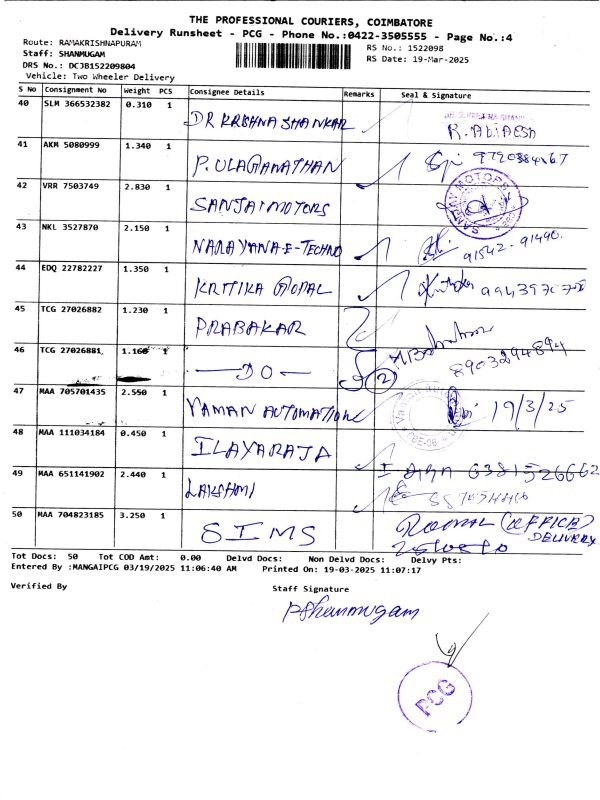 THE PROFESSIONAL COURIERS, COIMBATORE
Delivery Runsheet - PCG - Phone No.:0422-3505555 - Page No.:4
Route: RAMAKRISHNAPURAM
Staff: SHANMUGAM
DRS No.: DCJB152209804
Vehicle: Two Wheeler Delivery
RS No.: 1522098
RS Date: 19-Mar-2025
S No Consignment No Weight PCS Consignee Details Remarks Seal & Signature
40 SLM 366532382 0.310 1 DR KRISHNA SHANKAR R. ABiAESH
41 AKM 5080999 1.340 1 P. ULAGANATHAN
42 VRR 7503749 2.830 1 SANJAI MOTORS SANJAY MOTORS
43 NKL 3527870 2.150 1 NARAYANA-E-TECHNO 91542-91490
44 EDQ 22782227 1.350 1 KRITIKA GOPAL
45 TCG 27026882 1.230 1 PRABAKAR
46 TCG 27026881 1.160 1 DO 2 8903294894
47 MAA 705701435 2.550 1 VAMAN AUTOMATION 19/3/25
48 MAA 111034184 0.450 1 ILAYARAJA 6381526662
49 MAA 651141902 2.440 1 LAKSHMI
50 MAA 704823185 3.250 1 SIMS (OFFICE) DELIVERY
Tot Docs: 50 Tot COD Amt: 0.00 Delvd Docs: Non Delvd Docs: Delvy Pts:
Entered By :MANGAIPCG 03/19/2025 11:06:40 AM Printed On: 19-03-2025 11:07:17
Verified By Staff Signature
P Shanmugam
PCG